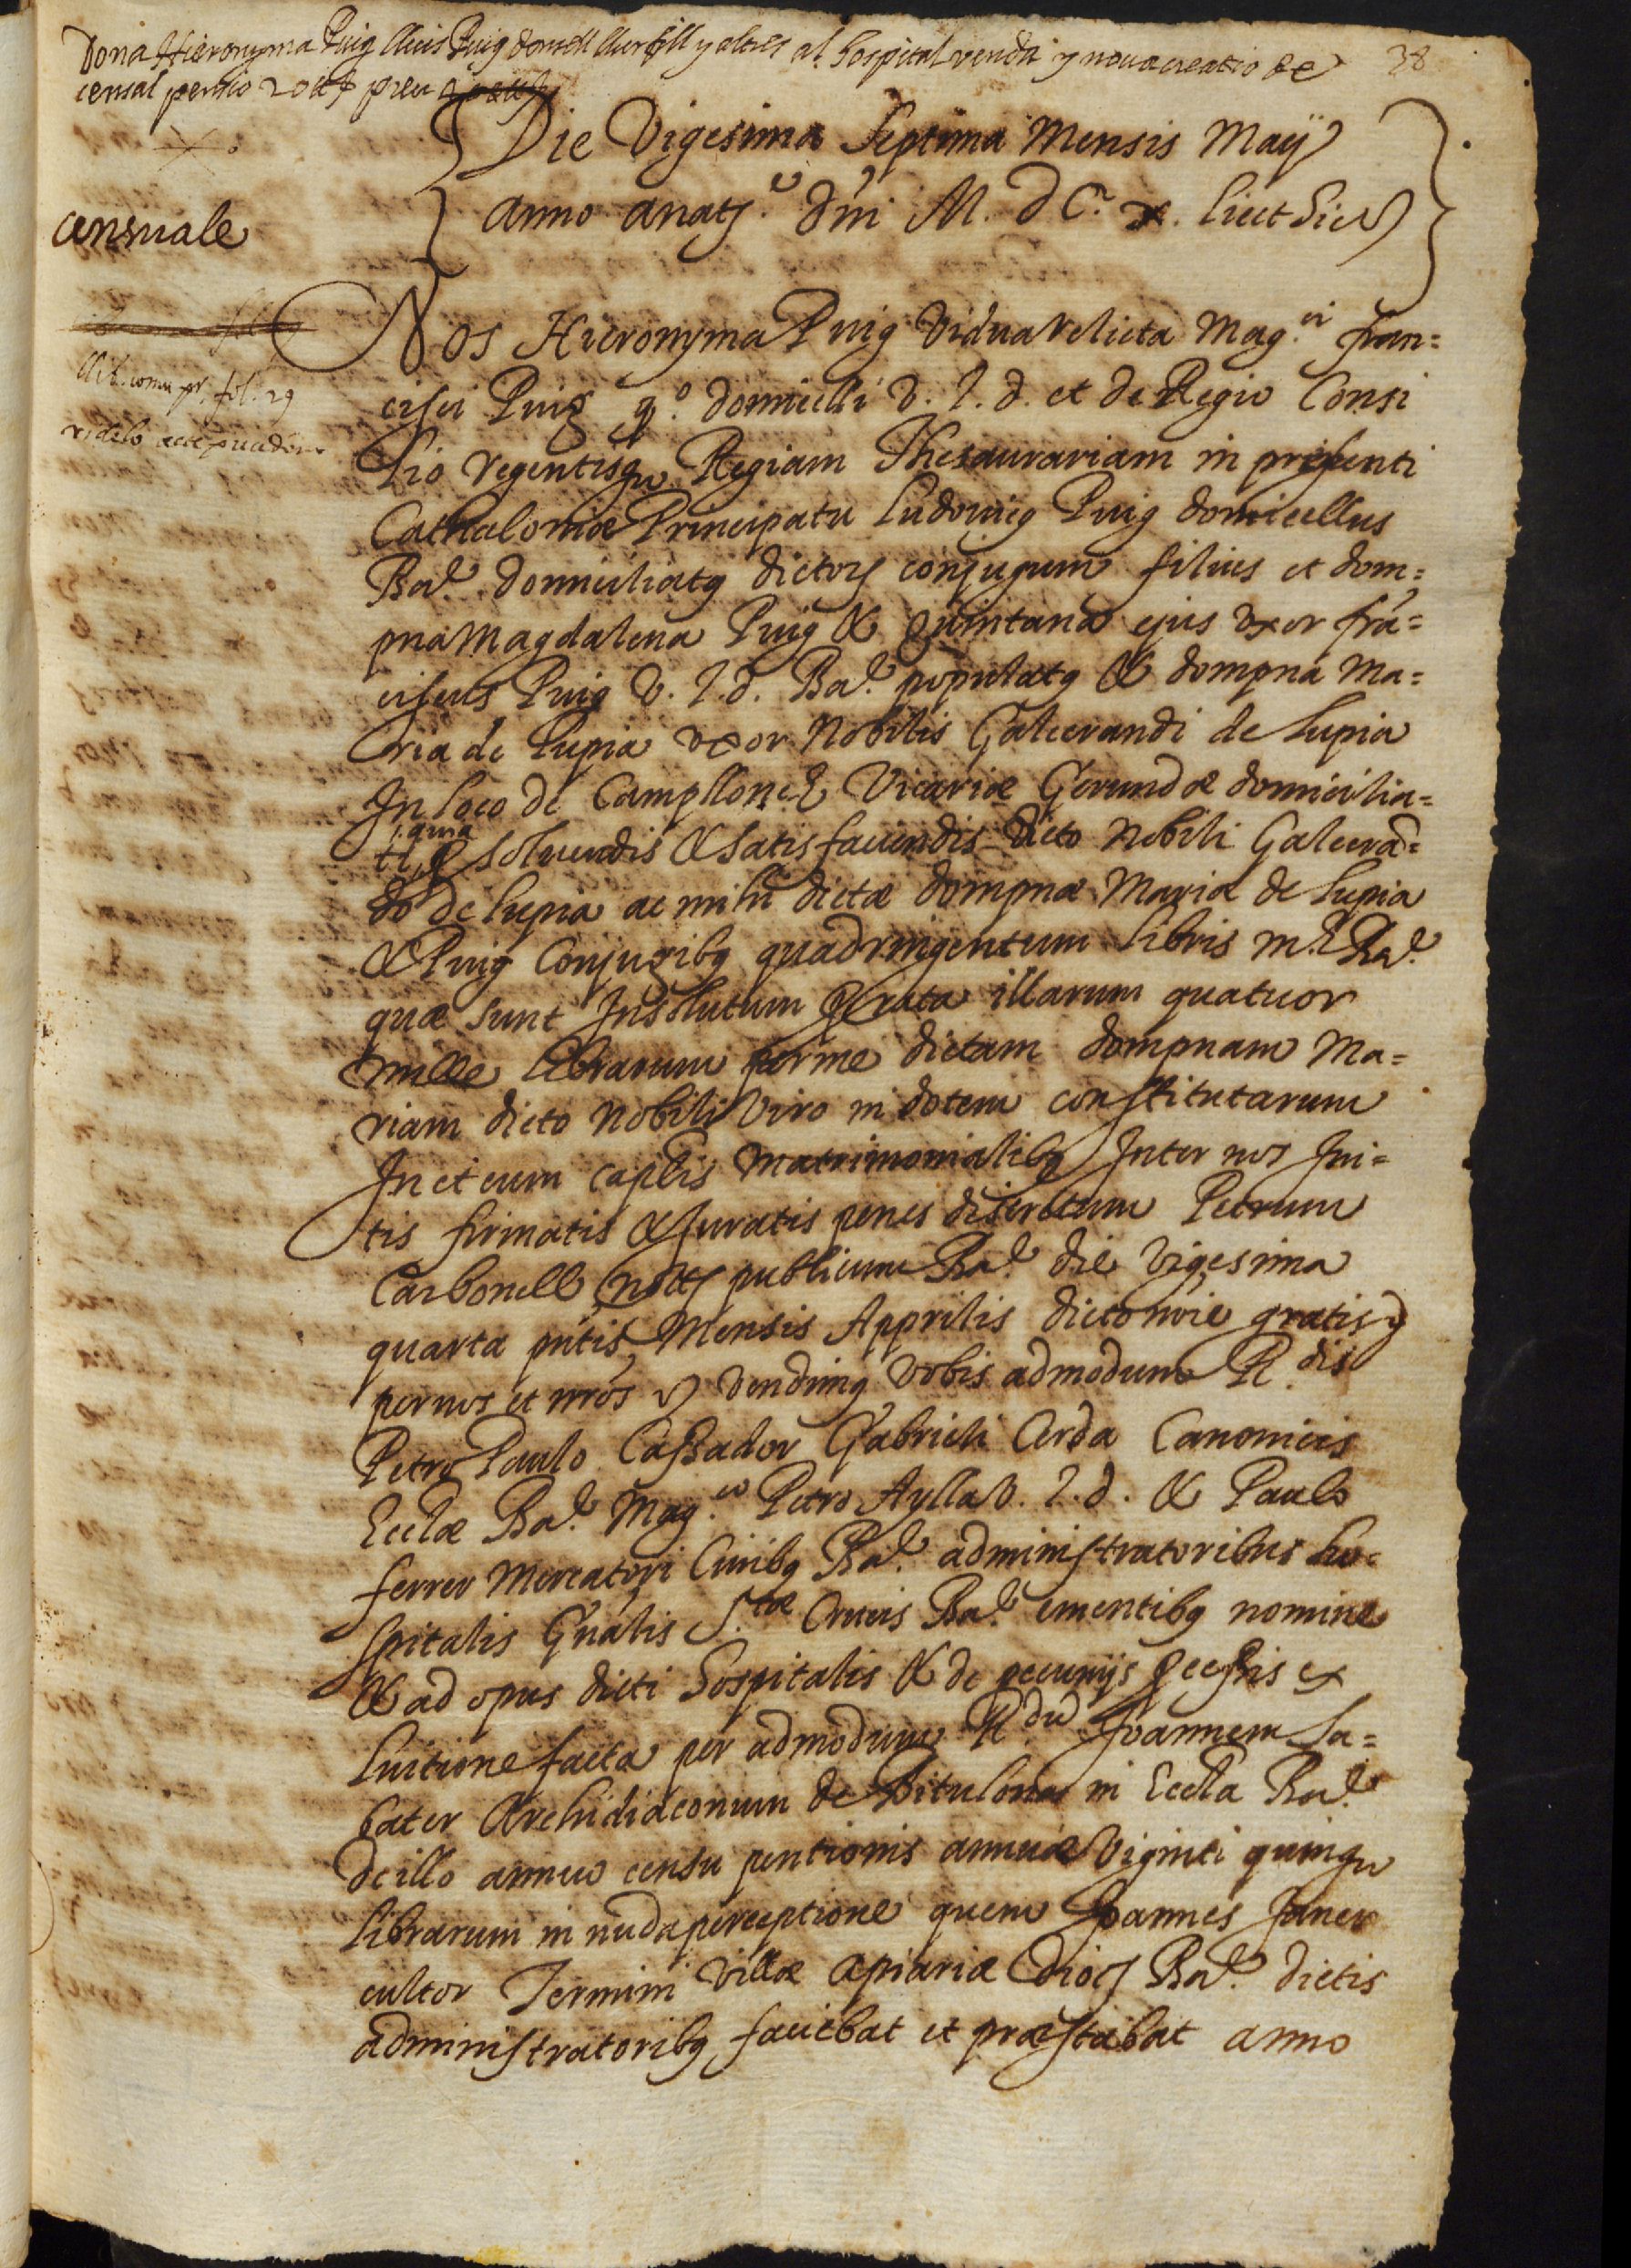 Dona Hieronyma Puig lluis Puig donzell llur fill y altres al hospital venda y nova creatio de 38
censal pensio 20 ll preu
Die Vigesima Septima Mensis Maij
anno anatᵉ. dñi M. dC. x. licet sic
censuale
Nos Hieronyma Puig Vidua relicta Mag.ci fran=
cisci Puig q.º domicelli V. J. d. et de Regio Consi
lio regentisq Regiam Thesaurariam in presenti
Cathaloniæ Principatu Ludovicq Puig domicellus
Baꝉ. domiciliatq dictorꝫ conjugum filius et dom=
pna Magdalena Puig & Quintana ejus uxor frã=
ciscus Puig V. J. d. Baꝉ. populatq & dompna Ma=
ria de Lupia uxor Nobilis Galcerandi de Lupia
In loco de Campllonch Vicariæ Gerundæ domicilia=
ti, quia ꝑ solvendis & satisfaciendis dicto Nobili Galcerã=
do de Lupia ac mihi dictæ dompnæ Maria de Lupia
& Puig Conjugibq quadringentum libris m.t Baꝉ.
quæ sunt Insolutum ꝓrata illarum quatuor
mille librarum per me dictam dompnam Ma=
riam dicto Nobili Viro in dotem constitutarum
In et cum caplis Matrimonialibq Inter nos Ini=
tis firmatis & Juratis penes discretum Petrum
Carbonell notꝫ publicum Baꝉ. die Vigesima
quarta pñtis Mensis Apprilis dicto nõie gratis &
per nos et nr̃os & vendimq Vobis admodum R.dis
Petro Paulo Cassador Gabrieli Cerda Canonicis
Ecclæ Baꝉ. Mag.co Petro Aylla V. J. d. & Paulo
ferrer Mercatori Civibq Baꝉ. administratoribus ho=
spitalis Gñalis S.tæ Crucis Baꝉ. ementibq nomine
& ad opus dicti Hospitalis & de pecunijs ꝓcessis ex
luitione facta per admodum R.du Joannem Sa=
bater Archidiaconum de Bitulona in Eccla Baꝉ.
de illo annuo censu pentionis annuæ Viginti quinq
librarum in nuda perceptione quem Joannes Janer
cultor Termini Villæ apiariæ diocꝫ Baꝉ. dictis
administratoribq faciebat et præstabat anno
llib. comu pr. fol. 29